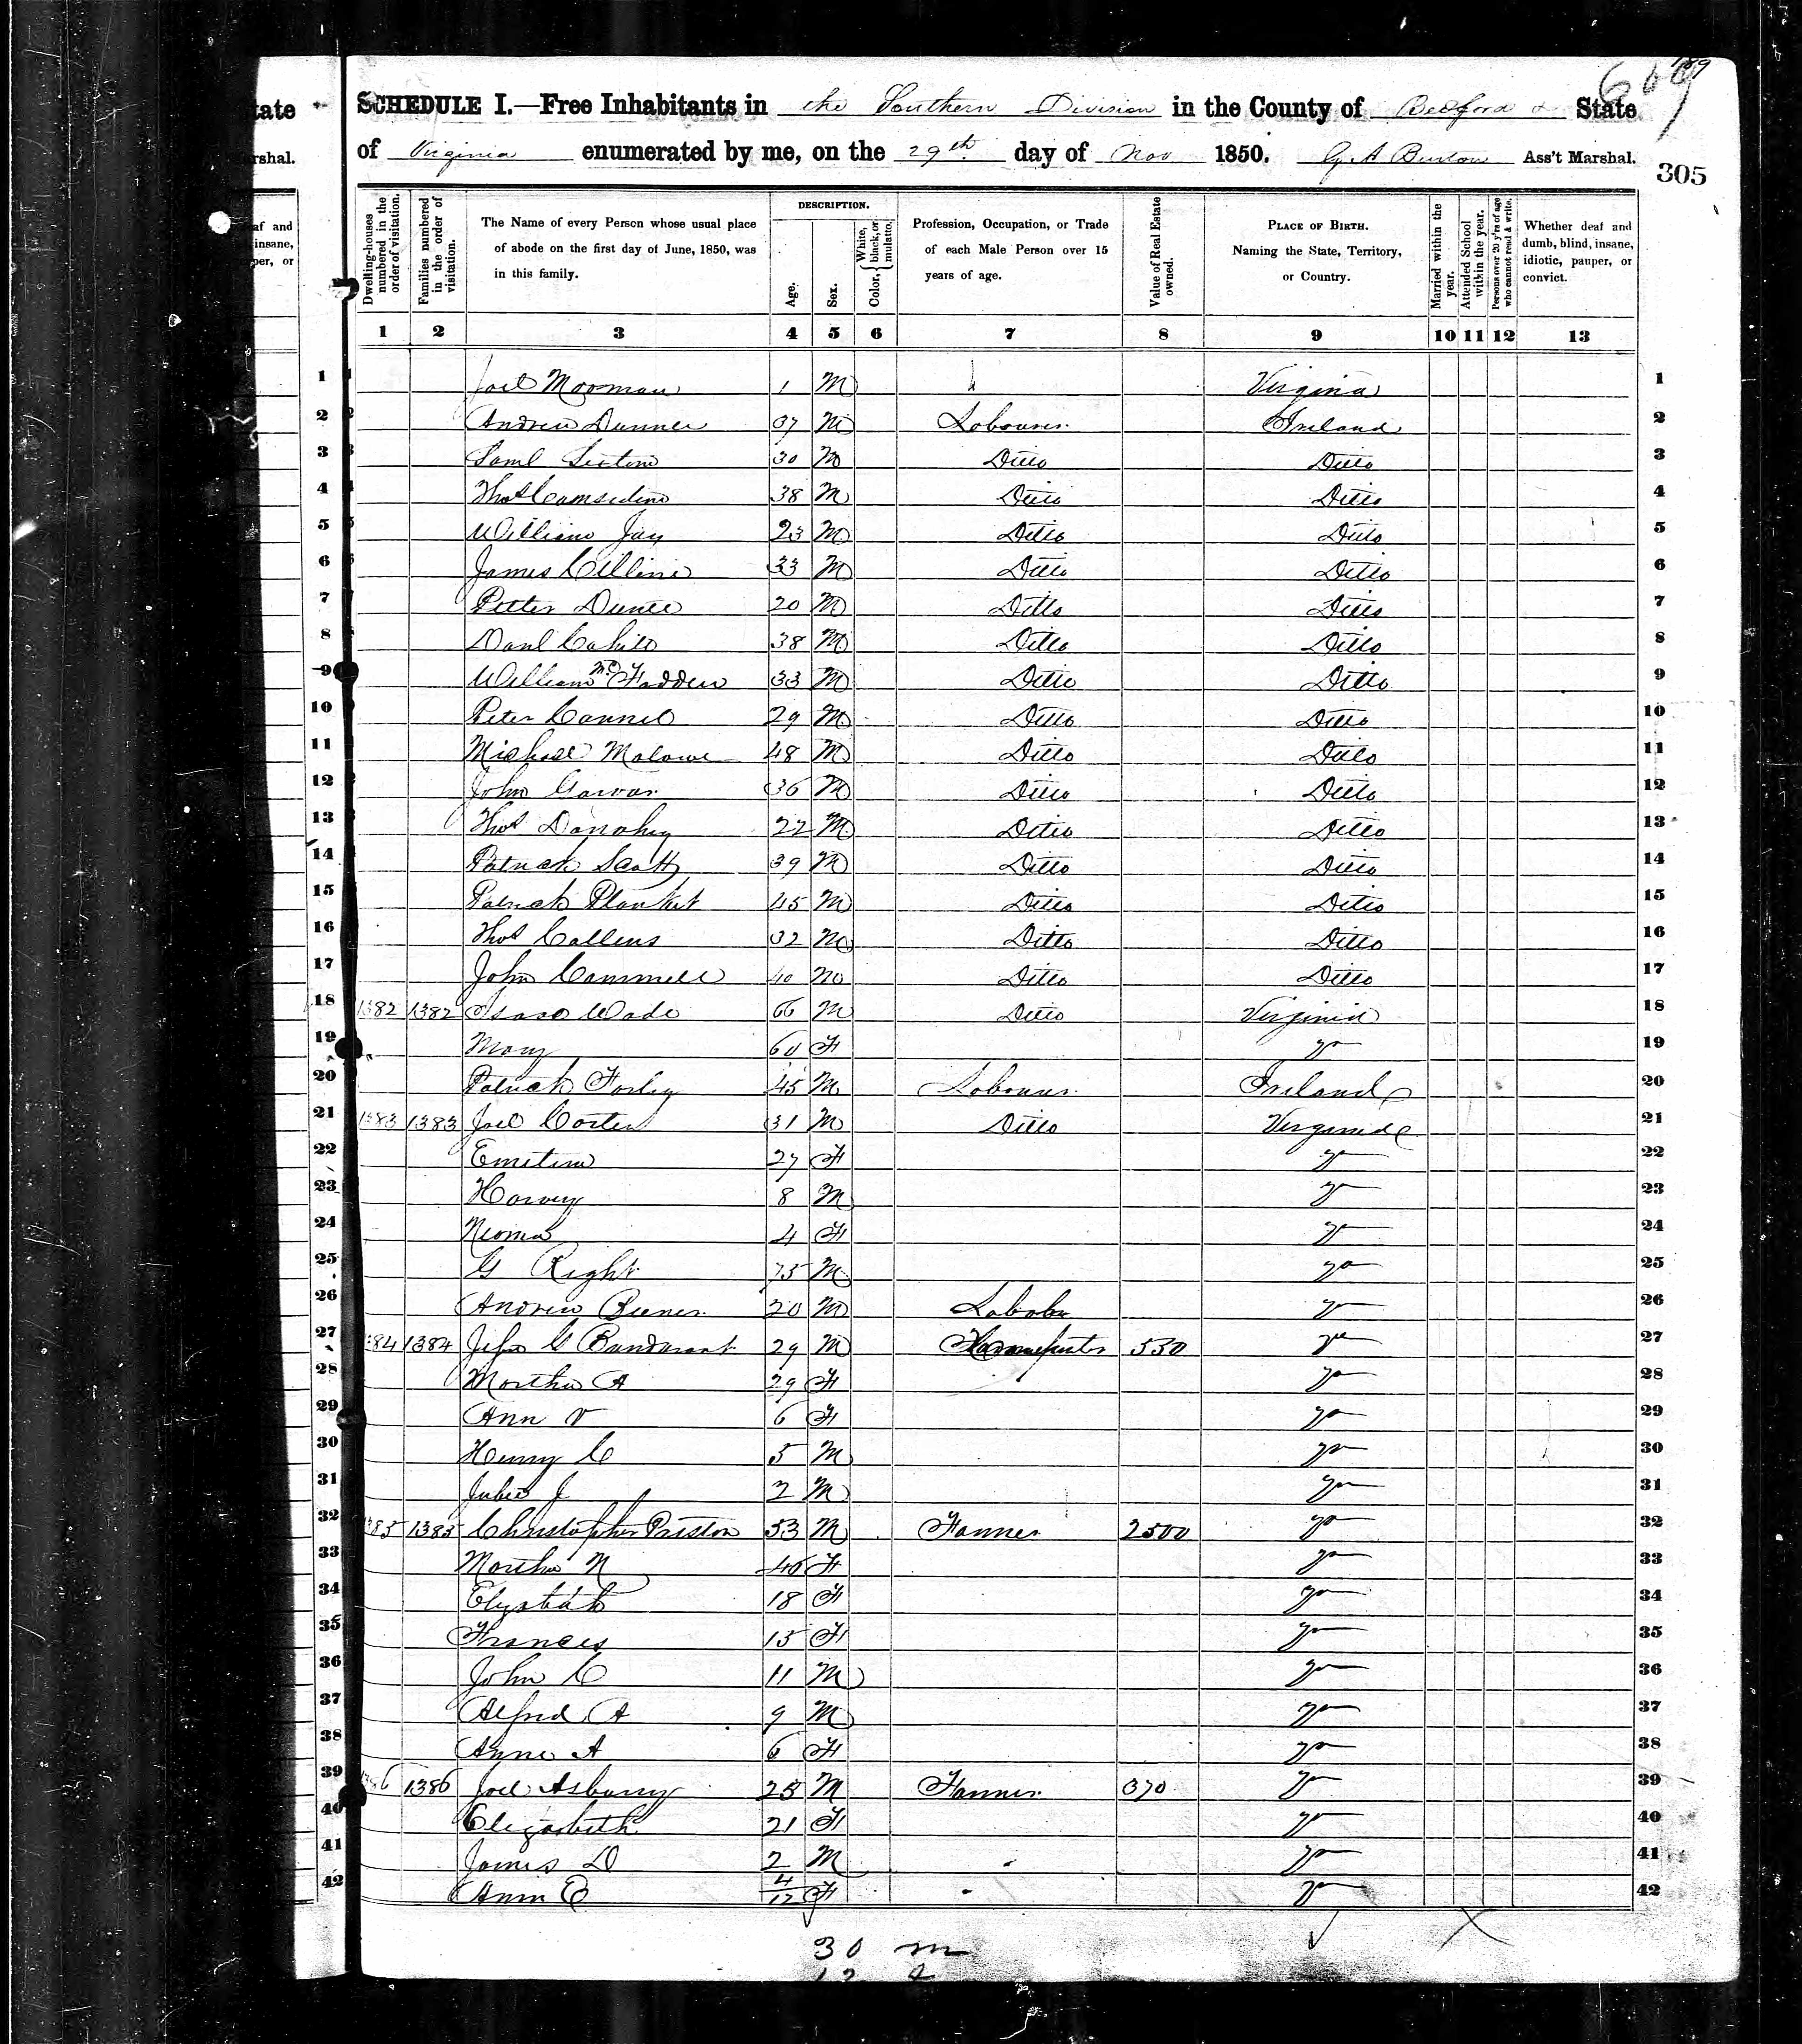 tate
rshal.
af and
insane,
per, or
609
189
SCHEDULE I.—Free Inhabitants in the Southern Division in the County of Bedford State
of Virginia enumerated by me, on the 29th day of Nov 1850. Ass't Marshal.
305
Dwelling-houses numbered in the order of visitation.
Families numbered in the order of visitation.
The Name of every Person whose usual place of abode on the first day of June, 1850, was in this family.
DESCRIPTION.
Age.
Sex.
Color, White, black, or mulatto.
Profession, Occupation, or Trade of each Male Person over 15 years of age.
Value of Real Estate owned.
PLACE OF BIRTH. Naming the State, Territory, or Country.
Married within the year.
Attended School within the year.
Persons over 20 y'rs of age who cannot read & write.
Whether deaf and dumb, blind, insane, idiotic, pauper, or convict.
1 2 3 4 5 6 7 8 9 10 11 12 13
1 Joel Moorman 1 M Virginia 1
2 Andrew 37 M Labourer Ireland 2
3 Saml 30 M Ditto Ditto 3
4 Thos 38 M Ditto Ditto 4
5 William Jay 23 M Ditto Ditto 5
6 James 33 M Ditto Ditto 6
7 Petter 20 M Ditto Ditto 7
8 Danl Cahill 38 M Ditto Ditto 8
9 William McFadden 33 M Ditto Ditto 9
10 Peter 29 M Ditto Ditto 10
11 Michael Malone 48 M Ditto Ditto 11
12 John Garvan 36 M Ditto Ditto 12
13 Thos Donahey 22 M Ditto Ditto 13
14 Patrick Scott 39 M Ditto Ditto 14
15 Patrick Plunket 45 M Ditto Ditto 15
16 Thos Collens 32 M Ditto Ditto 16
17 John Cammell 40 M Ditto Ditto 17
18 1382 1382 Isaac Wade 66 M Ditto Virginia 18
19 Mary 60 F 19
20 Patrick Forley 45 M Labourer Ireland 20
21 1383 1383 Joel Carter 31 M Ditto Virginia 21
22 27 F 22
23 Harvey 8 M 23
24 Neoma 4 F 24
25 G Right 75 M 25
26 Andrew 20 M 26
27 1384 1384 29 M 530 27
28 Martha A 29 F 28
29 Ann V 6 F 29
30 Henry C 5 M 30
31 J 2 M 31
32 1385 1385 Christopher Preston 53 M Farmer 2500 32
33 Martha N 46 F 33
34 18 F 34
35 Frances 15 F 35
36 John C 11 M 36
37 Alfred A 9 M 37
38 Anne A 6 F 38
39 1386 1386 Joel Asbury 25 M Farmer 370 39
40 Elizabeth 21 F 40
41 James D 2 M 41
42 Ann E 4/12 F 42
30 m
12 f